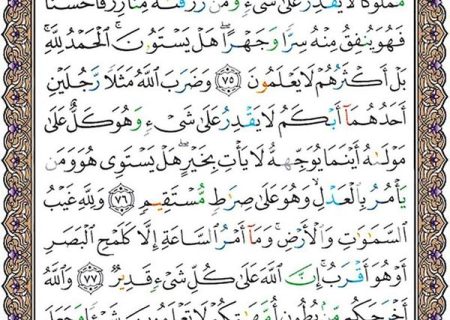 مَّمْلُوكًا لَّا يَقْدِرُ عَلَىٰ شَىْءٍ وَمَن رَّزَقْنَٰهُ مِنَّا رِزْقًا حَسَنًا
فَهُوَ يُنفِقُ مِنْهُ سِرًّا وَجَهْرًا ۖ هَلْ يَسْتَوُۥنَ ۚ ٱلْحَمْدُ لِلَّهِ ۚ
بَلْ أَكْثَرُهُمْ لَا يَعْلَمُونَ ۝٧٥ وَضَرَبَ ٱللَّهُ مَثَلًا رَّجُلَيْنِ
أَحَدُهُمَآ أَبْكَمُ لَا يَقْدِرُ عَلَىٰ شَىْءٍ وَهُوَ كَلٌّ عَلَىٰ
مَوْلَىٰهُ أَيْنَمَا يُوَجِّههُّ لَا يَأْتِ بِخَيْرٍ ۖ هَلْ يَسْتَوِى هُوَ وَمَن
يَأْمُرُ بِٱلْعَدْلِ ۙ وَهُوَ عَلَىٰ صِرَٰطٍ مُّسْتَقِيمٍ ۝٧٦ وَلِلَّهِ غَيْبُ
ٱلسَّمَٰوَٰتِ وَٱلْأَرْضِ ۚ وَمَآ أَمْرُ ٱلسَّاعَةِ إِلَّا كَلَمْحِ ٱلْبَصَرِ
أَوْ هُوَ أَقْرَبُ ۚ إِنَّ ٱللَّهَ عَلَىٰ كُلِّ شَىْءٍ قَدِيرٌ ۝٧٧ وَٱللَّهُ
أَخْرَجَكُم مِّنۢ بُطُونِ أُمَّهَٰتِكُمْ لَا تَعْلَمُونَ شَيْـًٔا وَجَعَلَ